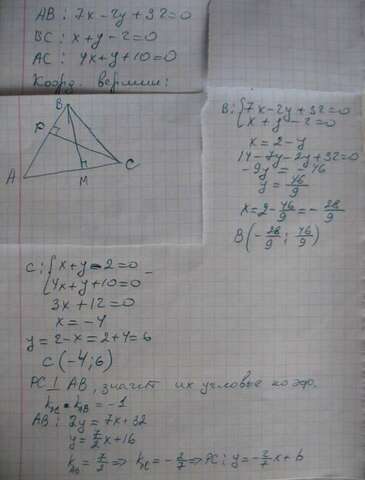 AB: 7x-2y+32=0
BC: x+y-2=0
AC: 4x+y+10=0
Коорд. вершин:
B
P
A
M
C
B: {7x-2y+32=0
x+y-2=0
x=2-y
14-7y-2y+32=0
-9y=-46
y=46/9
x=2-46/9=-28/9
B(-28/9; 46/9)
C: {x+y-2=0
4x+y+10=0
3x+12=0
x=-4
y=2-x=2+4=6
C(-4;6)
PC⊥AB, значит их угловые коэф.
k_PC • k_AB = -1
AB: 2y=7x+32
y=7/2x+16
k_AB=7/2 ⇒ k_PC=-2/7 ⇒ PC: y=-2/7x+b